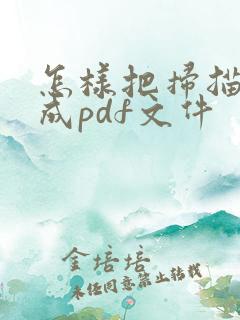 怎樣把掃描
成pdf文件
金培培
未经同意禁止转载